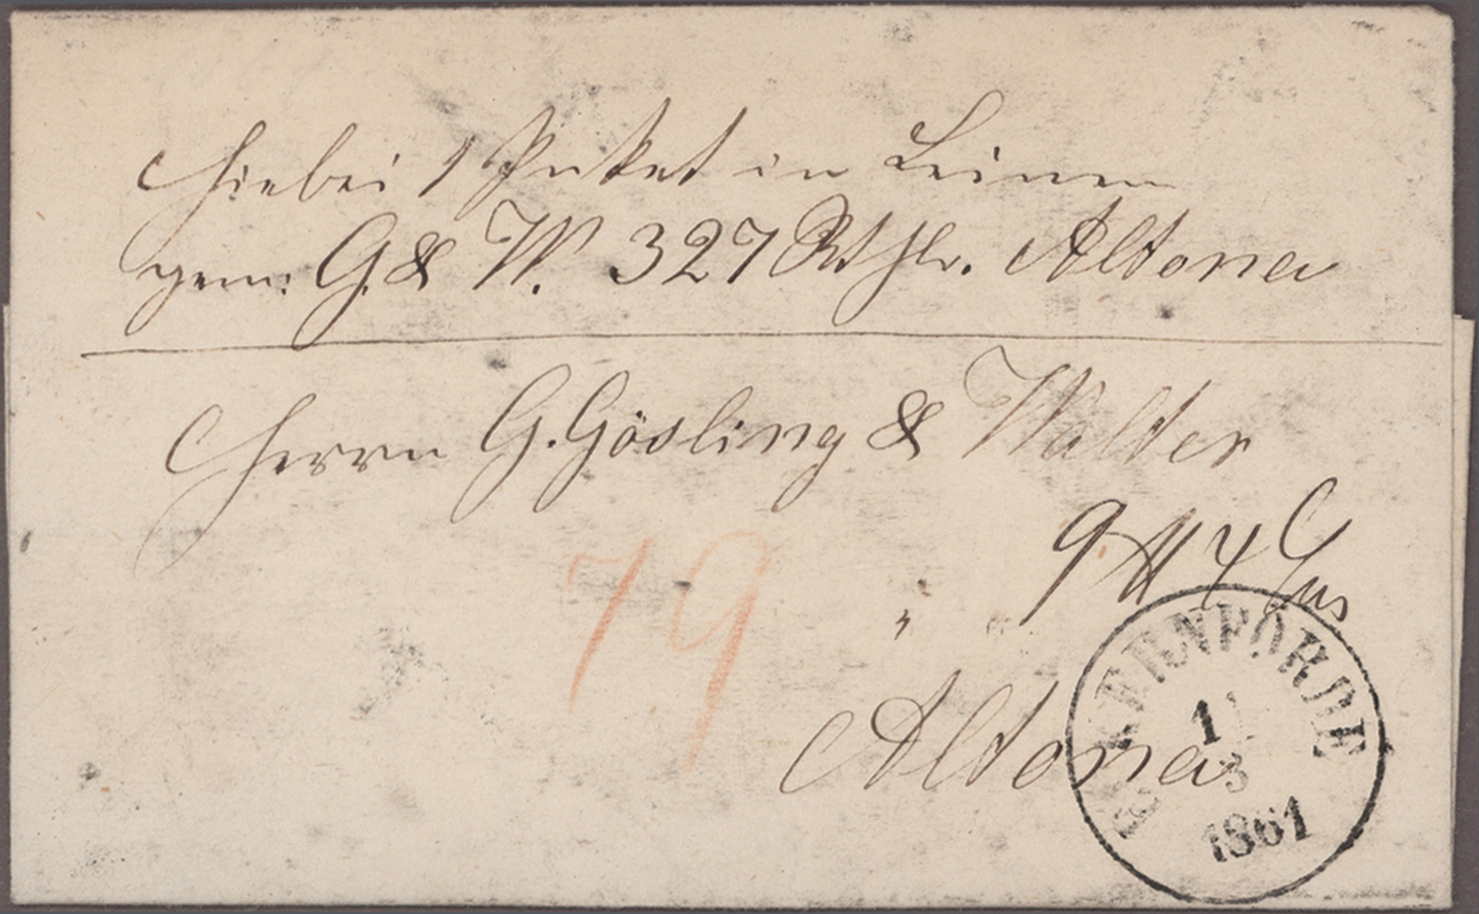 Hiebei 1 Paket in Leinen
gem: G. & W. 327 Rthlr. Altona
Herrn G. Gösling & Walter
9 ℔ 4
79
Altona
ECKERNFÖRDE
1
3
1861